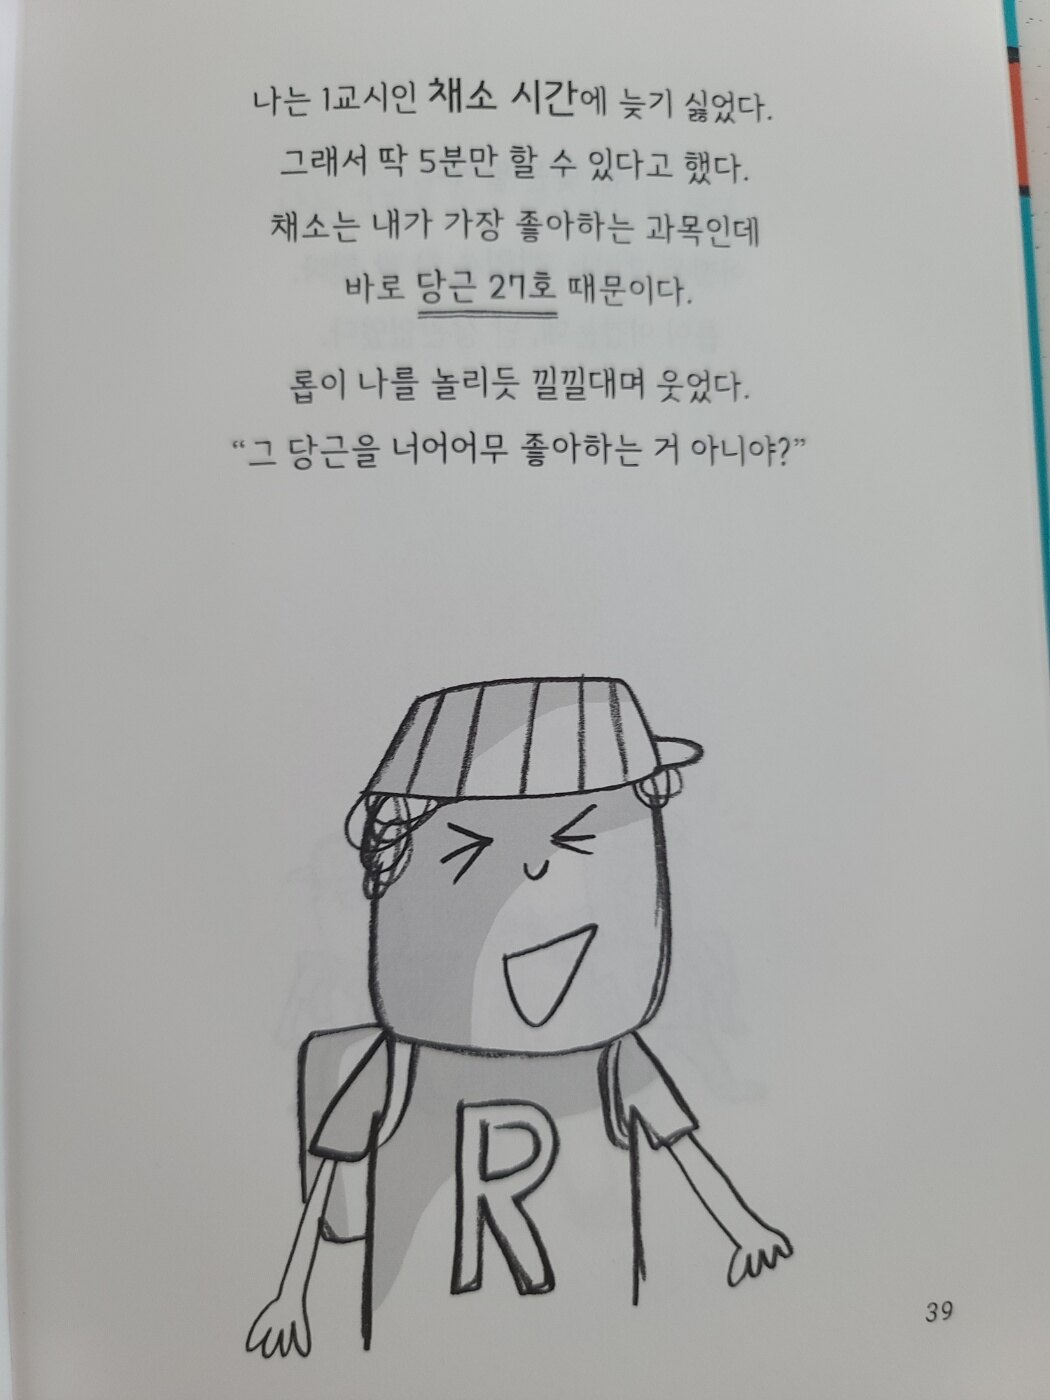 나는 1교시인 채소 시간에 늦기 싫었다.
그래서 딱 5분만 할 수 있다고 했다.
채소는 내가 가장 좋아하는 과목인데
바로 당근 27호 때문이다.
롭이 나를 놀리듯 낄낄대며 웃었다.
“그 당근을 너어어무 좋아하는 거 아니야?”
R
39